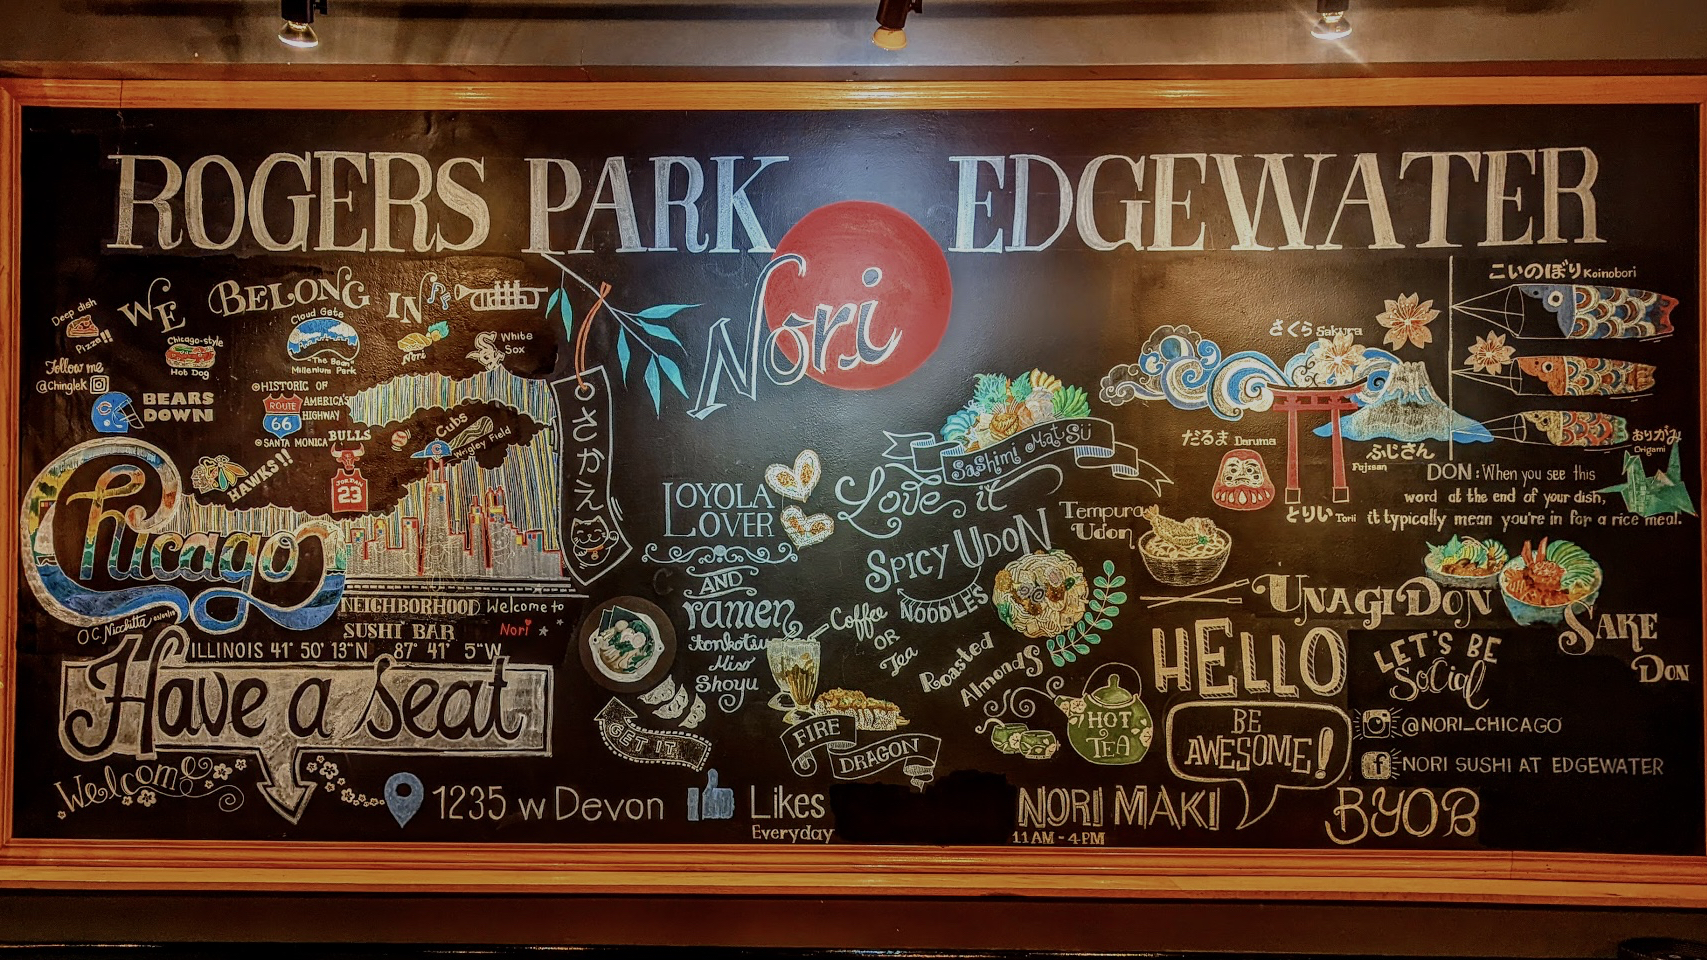 ROGERS PARK EDGEWATER
Nori
WE BELONG IN
Deep dish
Pizza!!
Follow me
@Chinglek
BEARS
DOWN
Chicago-style
Hot Dog
Cloud Gate
"The Bean"
Millenium Park
Nori
White
Sox
HISTORIC OF
AMERICA'S
HIGHWAY
ROUTE
66
SANTA MONICA
BULLS
JORDAN
23
HAWKS!!
Cubs
Wrigley Field
Chicago
NEIGHBORHOOD
SUSHI BAR
Welcome to
Nori
ILLINOIS 41° 50' 13"N 87° 41' 5"W
Have a seat
Welcome
1235 W Devon
Likes
Everyday
LOYOLA
LOVER
AND
ramen
tonkotsu
Miso
Shoyu
GET IT
Sashimi Matsu
Love it
SPICY UDON
NOODLES
Coffee
OR
Tea
Roasted
Almonds
FIRE
DRAGON
HOT
TEA
Tempura
Udon
さくら Sakura
だるま Daruma
とりい Torii
ふじさん
Fujisan
こいのぼり Koinobori
おりがみ
Origami
DON: When you see this
word at the end of your dish,
it typically mean you're in for a rice meal.
UNAGI DON
SAKE
DON
HELLO
BE
AWESOME!
LET'S BE
Social
@NORI_CHICAGO
f NORI SUSHI AT EDGEWATER
NORI MAKI
11AM - 4PM
BYOB